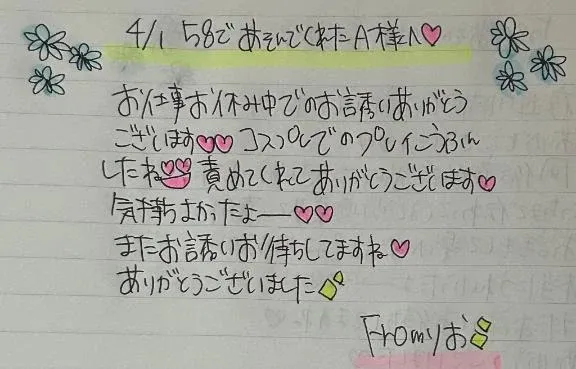 4/1 58であそんでくれたA様へ♡
お仕事お休み中でのお誘いありがとう
ございます♡♡ コスプレでのプレイこうふん
したね♡♡ 責めてくれてありがとうございます♡
気持ちよかったよー♡♡
またお誘いお待ちしてますね♡
ありがとうございました
Fromりお